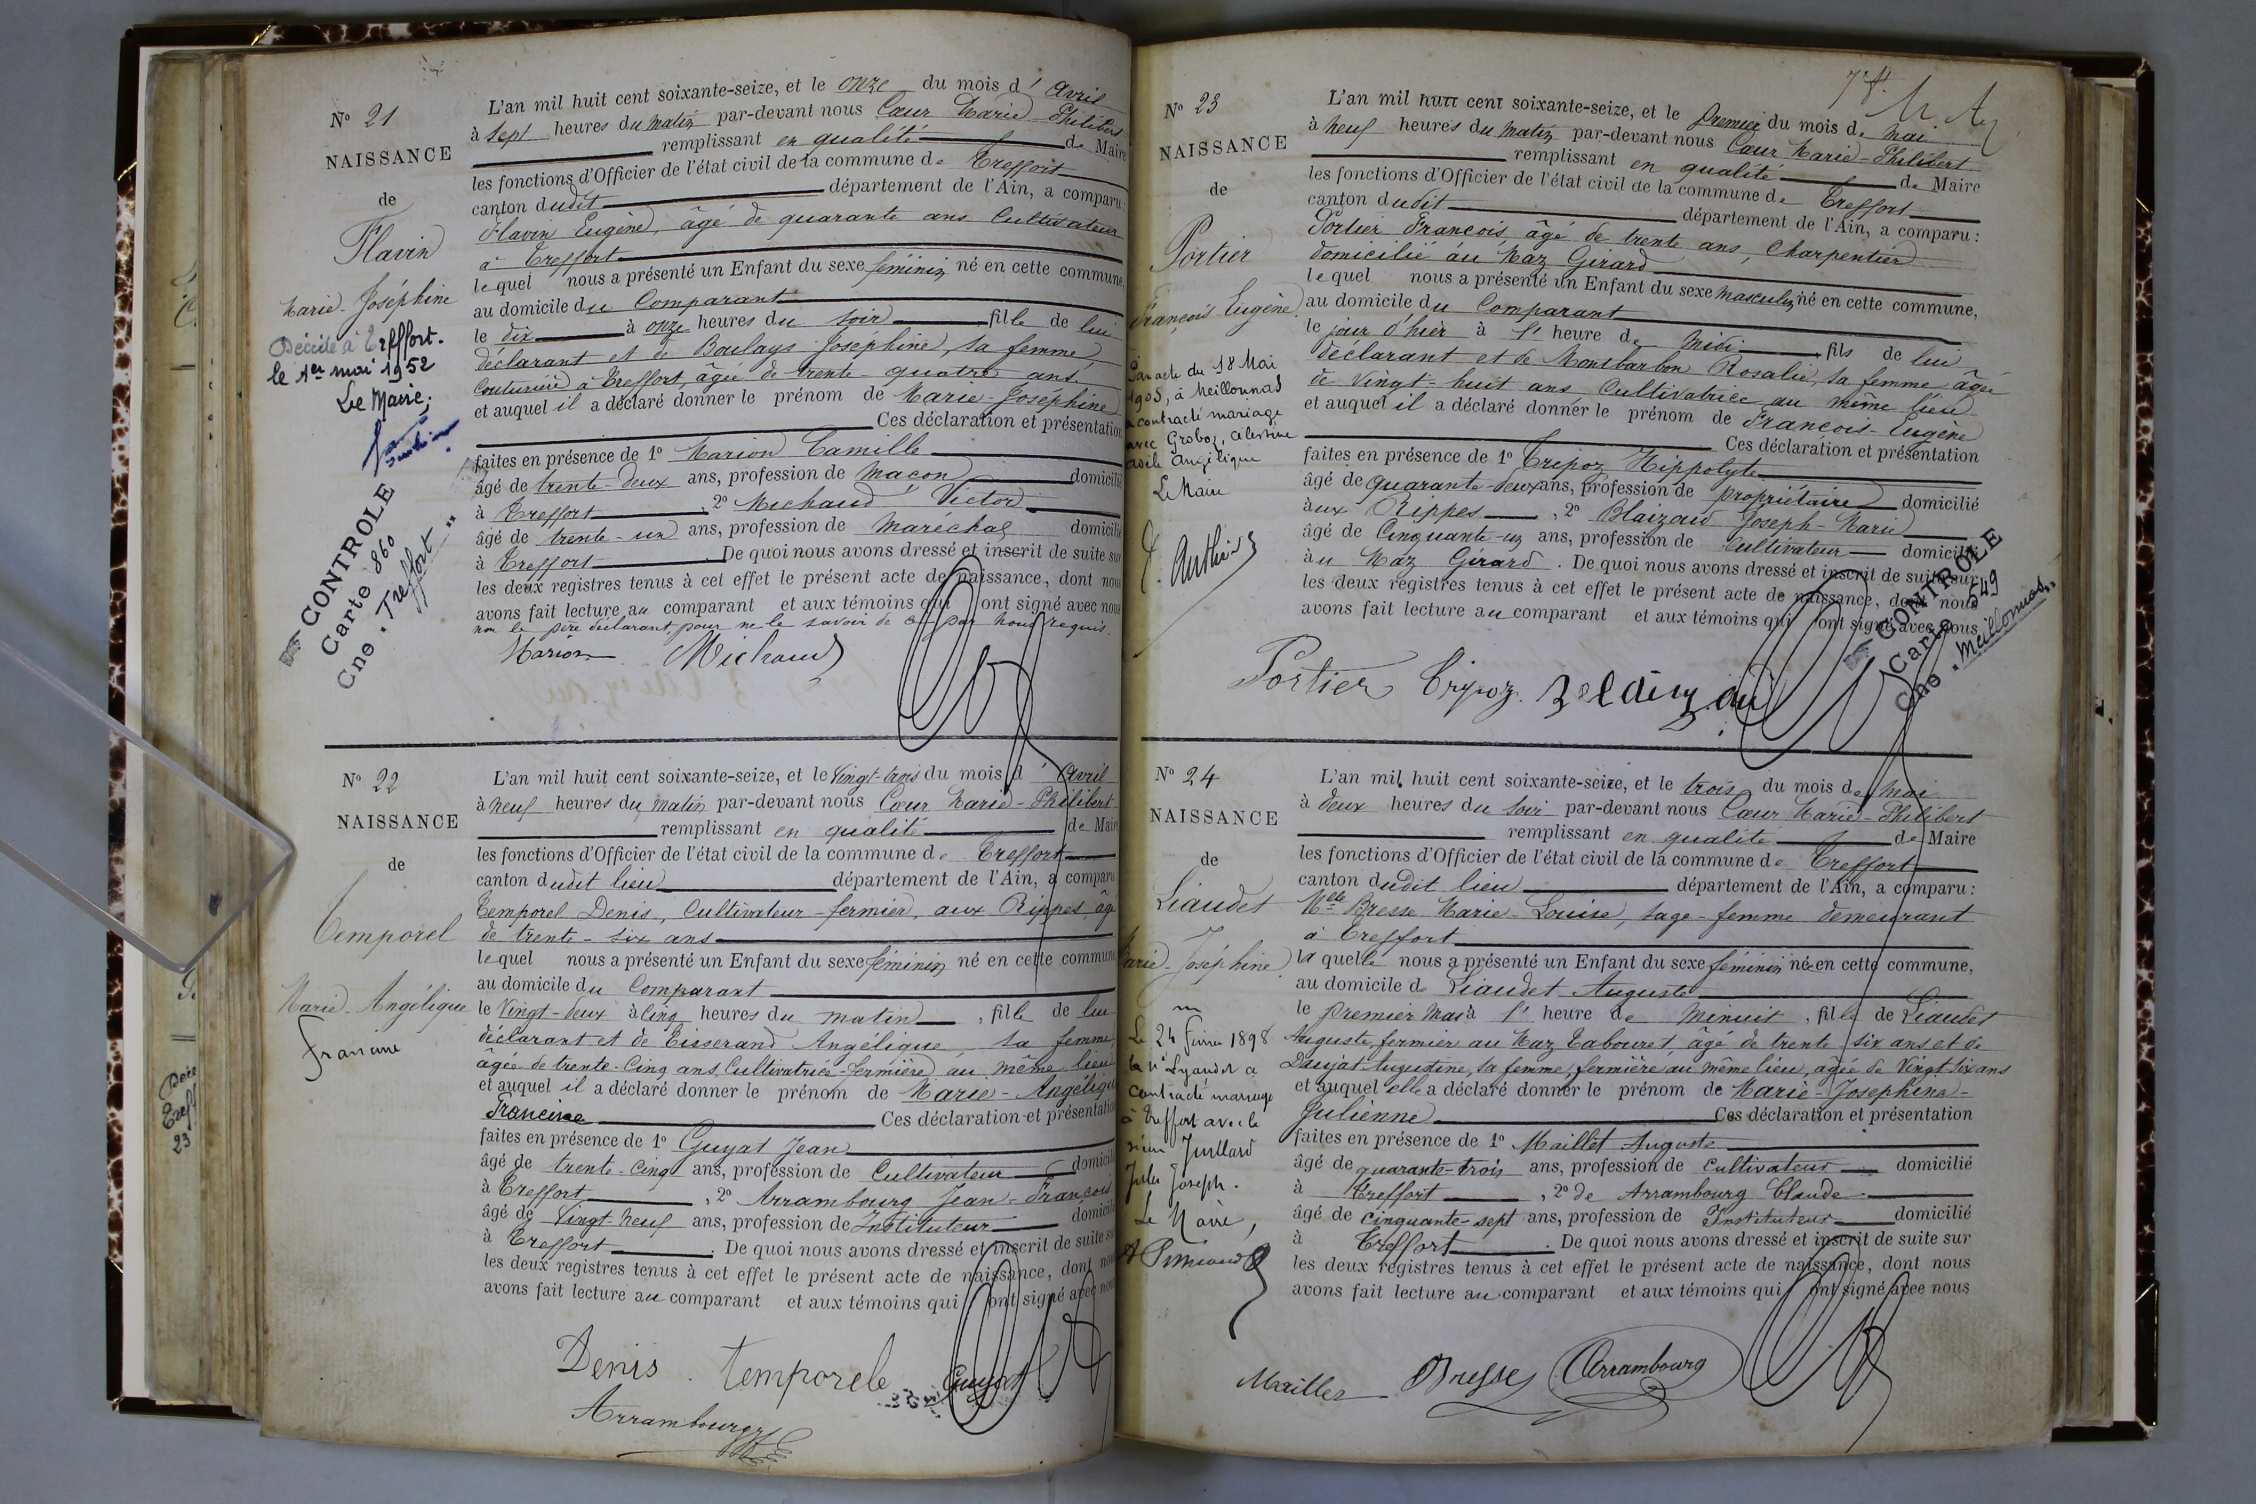 N° 21
NAISSANCE
de
Flavin
Marie-Joséphine
Décédée à Treffort.
le 1er mai 1952
Le Maire,
CONTROLE
Carte 860
Cne "Treffort"
L'an mil huit cent soixante-seize, et le onze du mois d'Avril
à Sept heures du matin par-devant nous Cœur Marie Philibert
remplissant en qualité de Maire
les fonctions d'Officier de l'état civil de la commune de Treffort
canton dudit département de l'Ain, a comparu:
Flavin Eugène, âgé de quarante ans Cultivateur
à Treffort
lequel nous a présenté un Enfant du sexe féminin né en cette commune,
au domicile du Comparant
le dix à onze heures du soir fille de lui
déclarant et de Boulays Josephine, sa femme
Couturière à Treffort, âgée de trente-quatre ans
et auquel il a déclaré donner le prénom de Marie-Joséphine
Ces déclaration et présentation
faites en présence de 1° Marion Camille
âgé de trente-deux ans, profession de maçon domicilié
à Treffort, 2° Michaud Victor
âgé de trente-un ans, profession de maréchal domicilié
à Treffort De quoi nous avons dressé et inscrit de suite sur
les deux registres tenus à cet effet le présent acte de naissance, dont nous
avons fait lecture au comparant et aux témoins qui ont signé avec nous
non le père déclarant, pour ne le savoir de ce par nous requis.
Marion Michaud
N° 22
NAISSANCE
de
Temporel
Marie-Angélique
Francine
L'an mil huit cent soixante-seize, et le Vingt-trois du mois d'Avril
à neuf heures du matin par-devant nous Cœur Marie-Philibert
remplissant en qualité de Maire
les fonctions d'Officier de l'état civil de la commune de Treffort
canton dudit lieu département de l'Ain, a comparu
Temporel Denis, Cultivateur-fermier, aux Rippes, âgé
de trente-six ans
lequel nous a présenté un Enfant du sexe féminin né en cette commune
au domicile du Comparant
le Vingt-deux à cinq heures du matin, fille de lui
déclarant et de Tisserand Angélique, sa femme
âgée de trente-cinq ans, Cultivatrice-fermière au même lieu
et auquel il a déclaré donner le prénom de Marie-Angélique
Francine Ces déclaration et présentation
faites en présence de 1° Guyat Jean
âgé de trente-cinq ans, profession de Cultivateur domicilié
à Treffort, 2° Arrambourg Jean-François
âgé de Vingt-neuf ans, profession de Instituteur domicilié
à Treffort. De quoi nous avons dressé et inscrit de suite sur
les deux registres tenus à cet effet le présent acte de naissance, dont nous
avons fait lecture au comparant et aux témoins qui ont signé avec nous
Denis temporele Guyat
Arrambourg
N° 23
NAISSANCE
de
Portier
François Eugène
Par acte du 18 Mai
1905, à Meillonnas
a contracté mariage
avec Groboz, Célestine
Angélique
Le Maire
L'an mil huit cent soixante-seize, et le Premier du mois de mai
à neuf heures du matin par-devant nous Cœur Marie-Philibert
remplissant en qualité de Maire
les fonctions d'Officier de l'état civil de la commune de Treffort
canton dudit département de l'Ain, a comparu:
Portier François âgé de trente ans, Charpentier
domicilié au Maz Girard
lequel nous a présenté un Enfant du sexe masculin né en cette commune,
au domicile du Comparant
le jour d'hier à l' heure de midi fils de lui
déclarant et de Montbarbon Rosalie, sa femme âgée
de vingt-huit ans Cultivatrice au même lieu
et auquel il a déclaré donner le prénom de François-Eugène
Ces déclaration et présentation
faites en présence de 1° Tripoz Hippolyte
âgé de quarante-deux ans, profession de propriétaire domicilié
aux Rippes, 2° Blaizoud Joseph-Marie
âgé de Cinquante-un ans, profession de Cultivateur domicilié
au Maz Girard. De quoi nous avons dressé et inscrit de suite sur
les deux registres tenus à cet effet le présent acte de naissance, dont nous
avons fait lecture au comparant et aux témoins qui ont signé avec nous
CONTROLE
Carte 549
Cne "Meillonnas"
Portier Tripoz
N° 24
NAISSANCE
de
Liaudet
Marie-Joséphine
Le 24 Février 1898
contracté mariage
à Treffort avec le
sieur Juillard
Jules Joseph.
Le Maire,
L'an mil huit cent soixante-seize, et le trois du mois de mai
à deux heures du soir par-devant nous Cœur Marie-Philibert
remplissant en qualité de Maire
les fonctions d'Officier de l'état civil de la commune de Treffort
canton dudit lieu département de l'Ain, a comparu:
Melle Bresse Marie-Louise, sage-femme demeurant
à Treffort
laquelle nous a présenté un Enfant du sexe féminin née en cette commune,
au domicile de Liaudet Auguste
le premier mai à l' heure de minuit, fille de Liaudet
Auguste, fermier au Maz Tabouret, âgé de trente-six ans et de
Daujat Augustine, sa femme, fermière au même lieu, âgée de Vingt-six ans
et auquel elle a déclaré donner le prénom de Marie-Joséphine-
Julienne Ces déclaration et présentation
faites en présence de 1° Maillet Auguste
âgé de quarante-trois ans, profession de Cultivateur domicilié
à Treffort, 2° de Arrambourg Claude
âgé de cinquante-sept ans, profession de Instituteur domicilié
à Treffort. De quoi nous avons dressé et inscrit de suite sur
les deux registres tenus à cet effet le présent acte de naissance, dont nous
avons fait lecture au comparant et aux témoins qui ont signé avec nous
Maillet Bresse Arrambourg